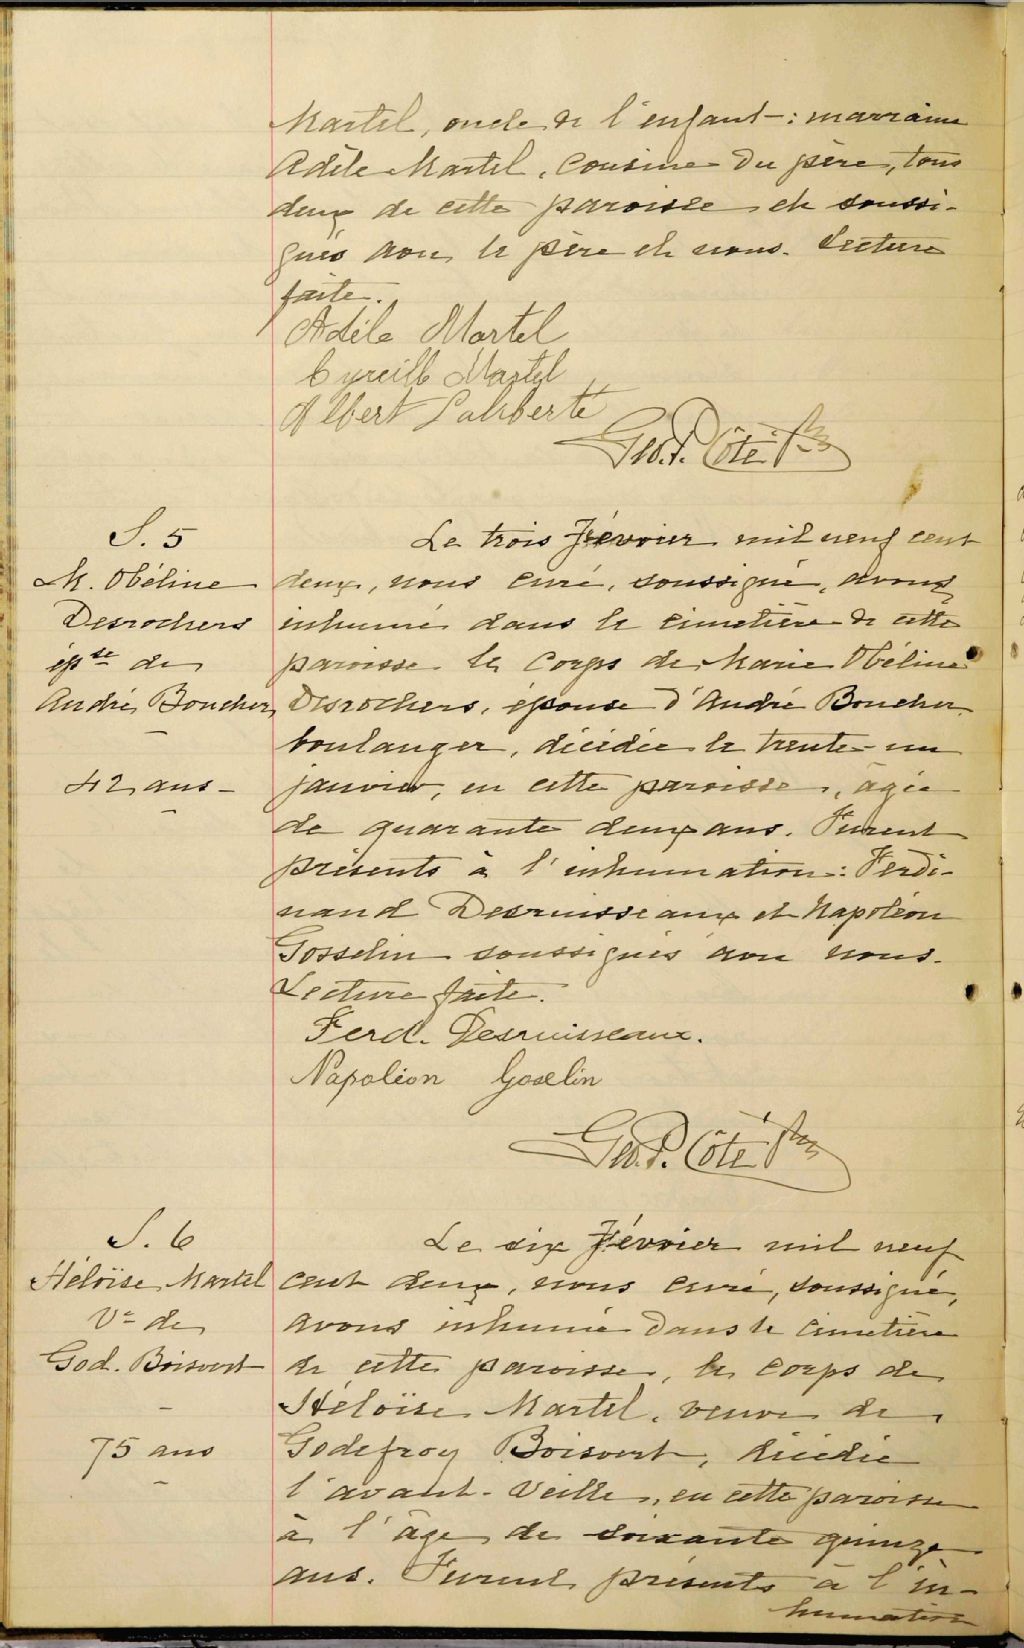 Martel, oncle de l'enfant : marraine
Adèle Martel, cousine du père, tous
deux de cette paroisse et soussi-
gnés avec le père et nous. Lecture
faite.
Adèle Martel
Cyreille Martel
Albert Laliberté
Geo. P. Côté Ptre
S. 5
M. Obéline
Desrochers
épse de
André Boucher
42 ans
Le trois Février mil neuf cent
deux, nous curé, soussigné, avons
inhumé dans le cimetière de cette
paroisse le corps de Marie Obéline
Desrochers, épouse d'André Boucher
boulanger, décédée le trente-un
janvier, en cette paroisse, âgée
de quarante deux ans. Furent
présents à l'inhumation : Ferdi-
nand Desruisseaux et Napoléon
Gosselin soussignés avec nous.
Lecture faite.
Ferd. Desruisseaux.
Napoléon Gosselin
Geo. P. Côté Ptre
S. 6
Héloïse Martel
Ve de
God. Boisvert
75 ans
Le six Février mil neuf
cent deux, nous curé, soussigné,
avons inhumé dans le cimetière
de cette paroisse, le corps de
Héloïse Martel, veuve de
Godefroy Boisvert, décédée
l'avant-veille, en cette paroisse
à l'âge de soixante quinze
ans. Furent présents à l'in-
humation